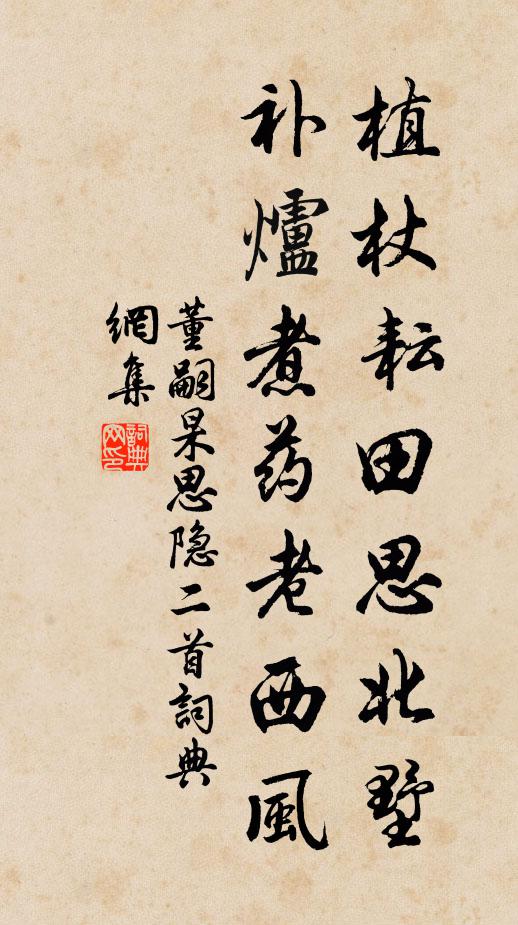 植杖耘田思北墅
补爐煮药老西風
董嗣杲思隐二首詞典
網集
詞典
网印